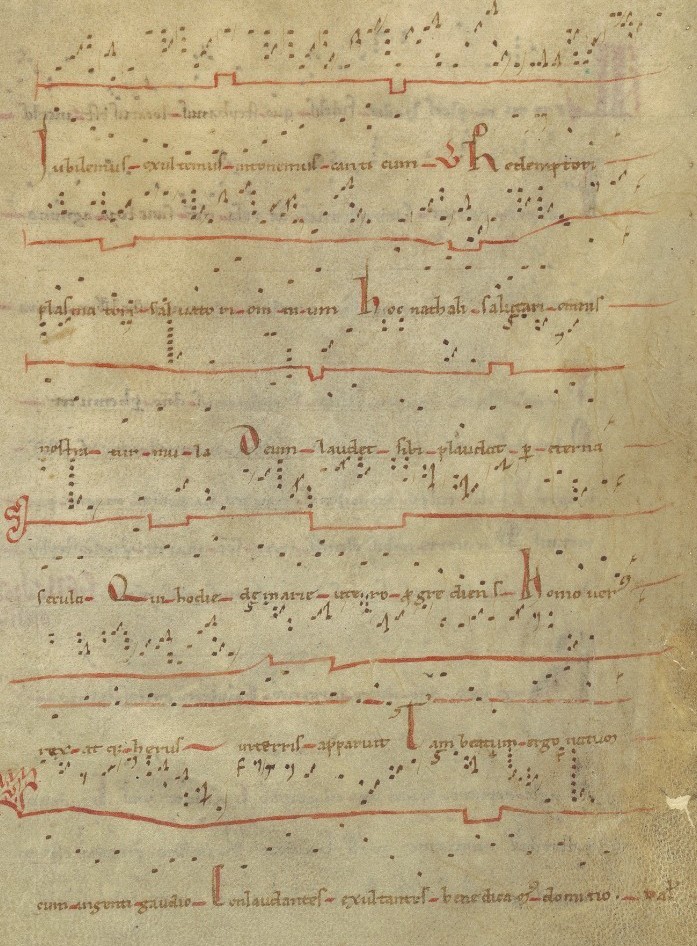 Jubilemus exultemus intonemus canti cum Redemptori
plasma tori salvato ri om ni um hoc nathali salutari omnis
nostra tur mu la Deum laudet sibi plaudat per eterna
secula Qui hodie de marie utero progre diens homo verus
rex at que herus in terris apparuit Tam beatum ergo natum
cum ingenti gaudio Conlaudantes exultantes benedicamus domino